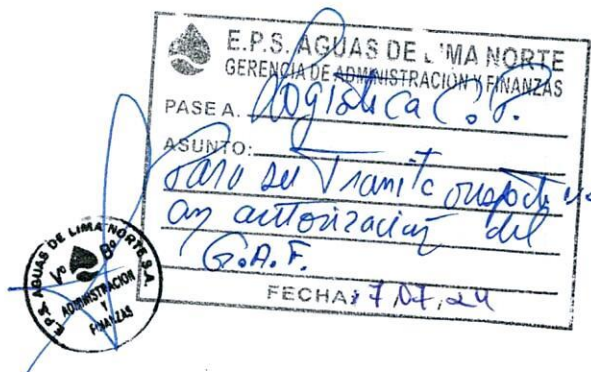 E.P.S. AGUAS DE LIMA NORTE
GERENCIA DE ADMINISTRACION Y FINANZAS
PASE A: Logistica C.P.
ASUNTO:
Para su Tramite respectivo
an autorizacion del
G.A.F.
FECHA: 7.07.24
E.P.S. AGUAS DE LIMA NORTE S.A.
Vº Bº
ADMINISTRACION
Y
FINANZAS